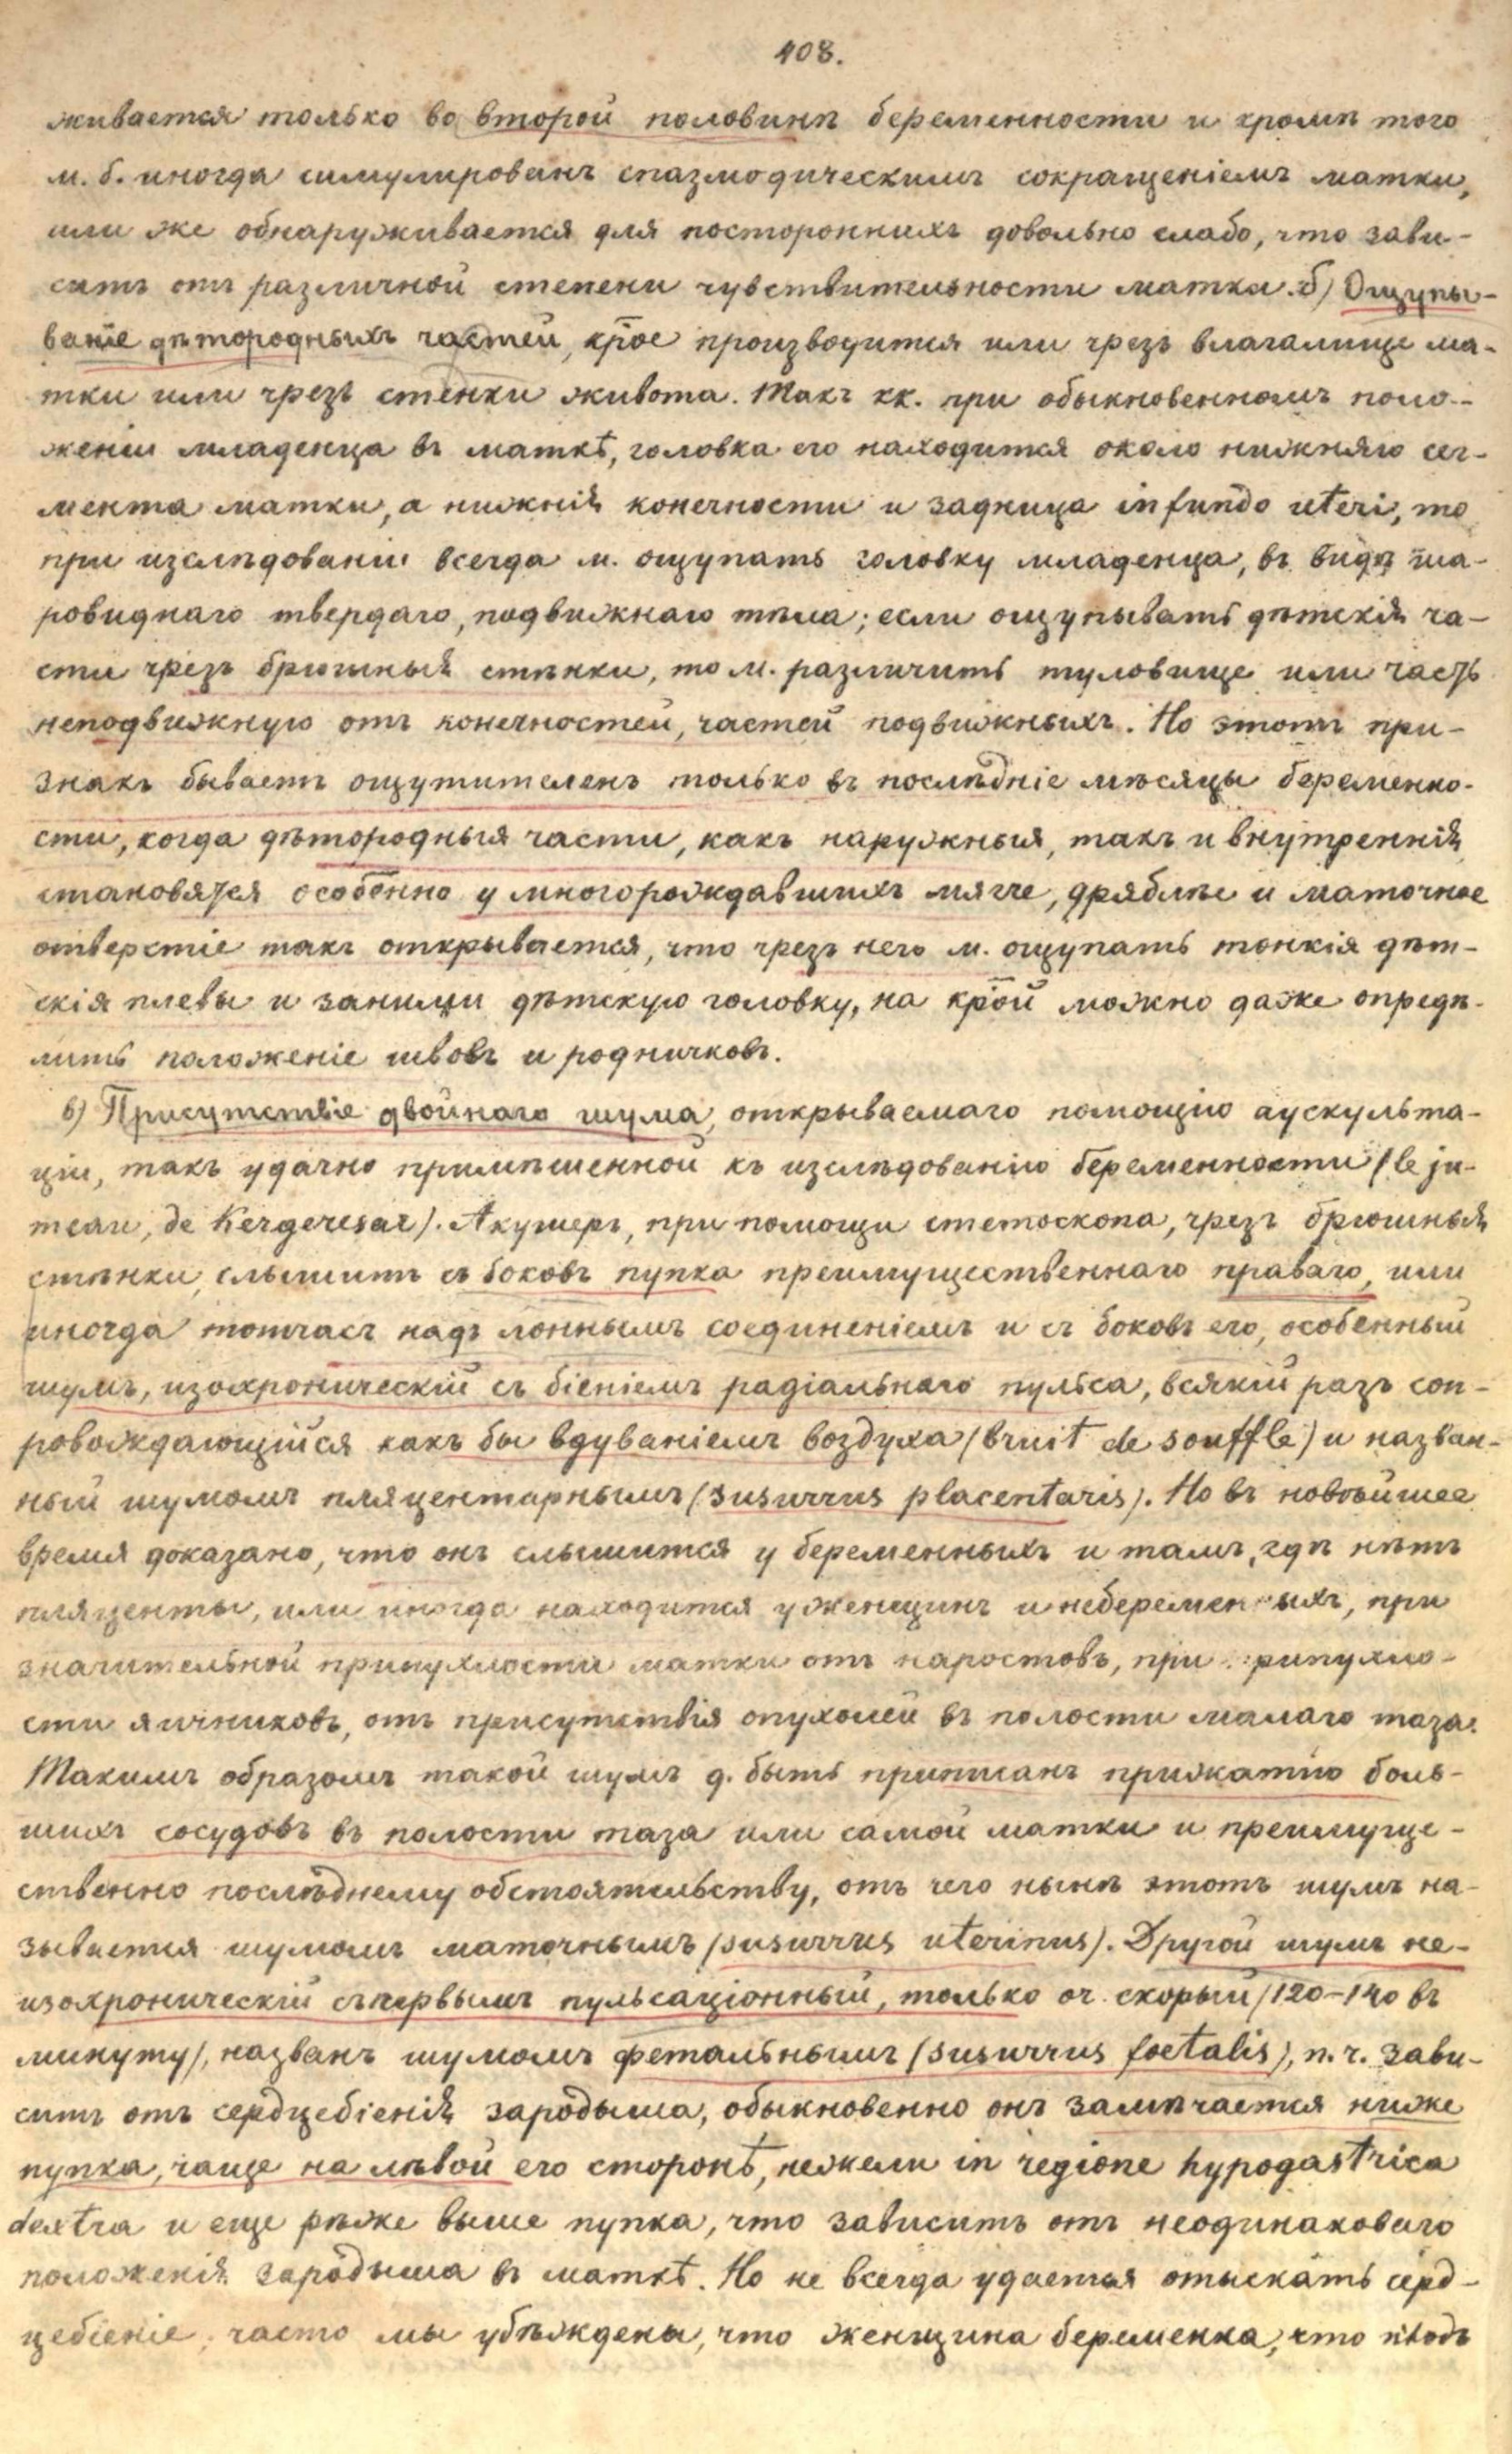 408.
живается только во второй половинѣ беременности и кромѣ того
м. б. иногда симулированъ спазмодическимъ сокращеніемъ матки,
или же обнаруживается для постороннихъ довольно слабо, что зави-
ситъ отъ различной степени чувствительности матки. б) Ощупы-
ваніе дѣтородныхъ частей, крое производится или чрезъ влагалище ма-
тки или чрезъ стѣнки живота. Такъ кк. при обыкновенномъ поло-
женіи младенца въ маткѣ, головка его находится около нижняго сег-
мента матки, а нижнія конечности и задница in fundo uteri, то
при изслѣдованіи всегда м. ощупать головку младенца, въ видѣ ша-
ровиднаго твердаго, подвижнаго тѣла; если ощупывать дѣтскія ча-
сти чрезъ брюшныя стѣнки, то м. различить туловище или часть
неподвижную отъ конечностей, частей подвижныхъ. Но этотъ при-
знакъ бываетъ ощутителенъ только въ послѣдніе мѣсяцы беременно-
сти, когда дѣтородныя части, какъ наружныя, такъ и внутреннія
становятся особенно у многорождавшихъ мягче, дряблѣе и маточное
отверстіе такъ открывается, что чрезъ него м. ощупать тонкія дѣт-
скія плевы и заними дѣтскую головку, на крой можно даже опредѣ-
лить положеніе швовъ и родничковъ.
в) Присутствіе двойнаго шума, открываемаго помощію аускульта-
ціи, такъ удачно примѣненной къ изслѣдованію беременности (le ju-
теаи, de Kergeresar). Акушеръ, при помощи стетоскопа, чрезъ брюшныя
стѣнки, слышитъ съ боковъ пупка преимущественнаго праваго, или
иногда тотчасъ надъ лоннымъ соединеніемъ и съ боковъ его, особенный
шумъ, изохроническій съ біеніемъ радіальнаго пульса, всякій разъ соп-
ровождающійся какъ бы вдуваніемъ воздуха (bruit de souffle) и назван-
ный шумомъ пляцентарнымъ (susurrus placentaris). Но въ новѣйшее
время доказано, что онъ слышится у беременныхъ и тамъ, гдѣ нѣтъ
пляценты, или иногда находится у женщинъ и небеременныхъ, при
значительной припухлости матки отъ наростовъ, при припухло-
сти яичниковъ, отъ присутствія опухолей въ полости малаго таза.
Такимъ образомъ такой шумъ д. быть приписанъ прижатію боль-
шихъ сосудовъ въ полости таза или самой матки и преимуще-
ственно послѣднему обстоятельству, отъ чего нынѣ этотъ шумъ на-
зывается шумомъ маточнымъ (susurrus uterinus). Другой шумъ не-
изохроническій съ первымъ пульсаціонный, только оч. скорый (120-140 въ
минуту), названъ шумомъ фетальнымъ (susurrus foetalis), п. ч. зави-
ситъ отъ сердцебіенія зародыша, обыкновенно онъ замѣчается ниже
пупка, чаще на лѣвой его сторонѣ, нежели in regione hypogastrica
dextra и еще рѣже выше пупка, что зависитъ отъ неодинаковаго
положенія зародыша въ маткѣ. Но не всегда удается отыскать серд-
цебіеніе; часто мы убѣждены, что женщина беременна, что плодъ